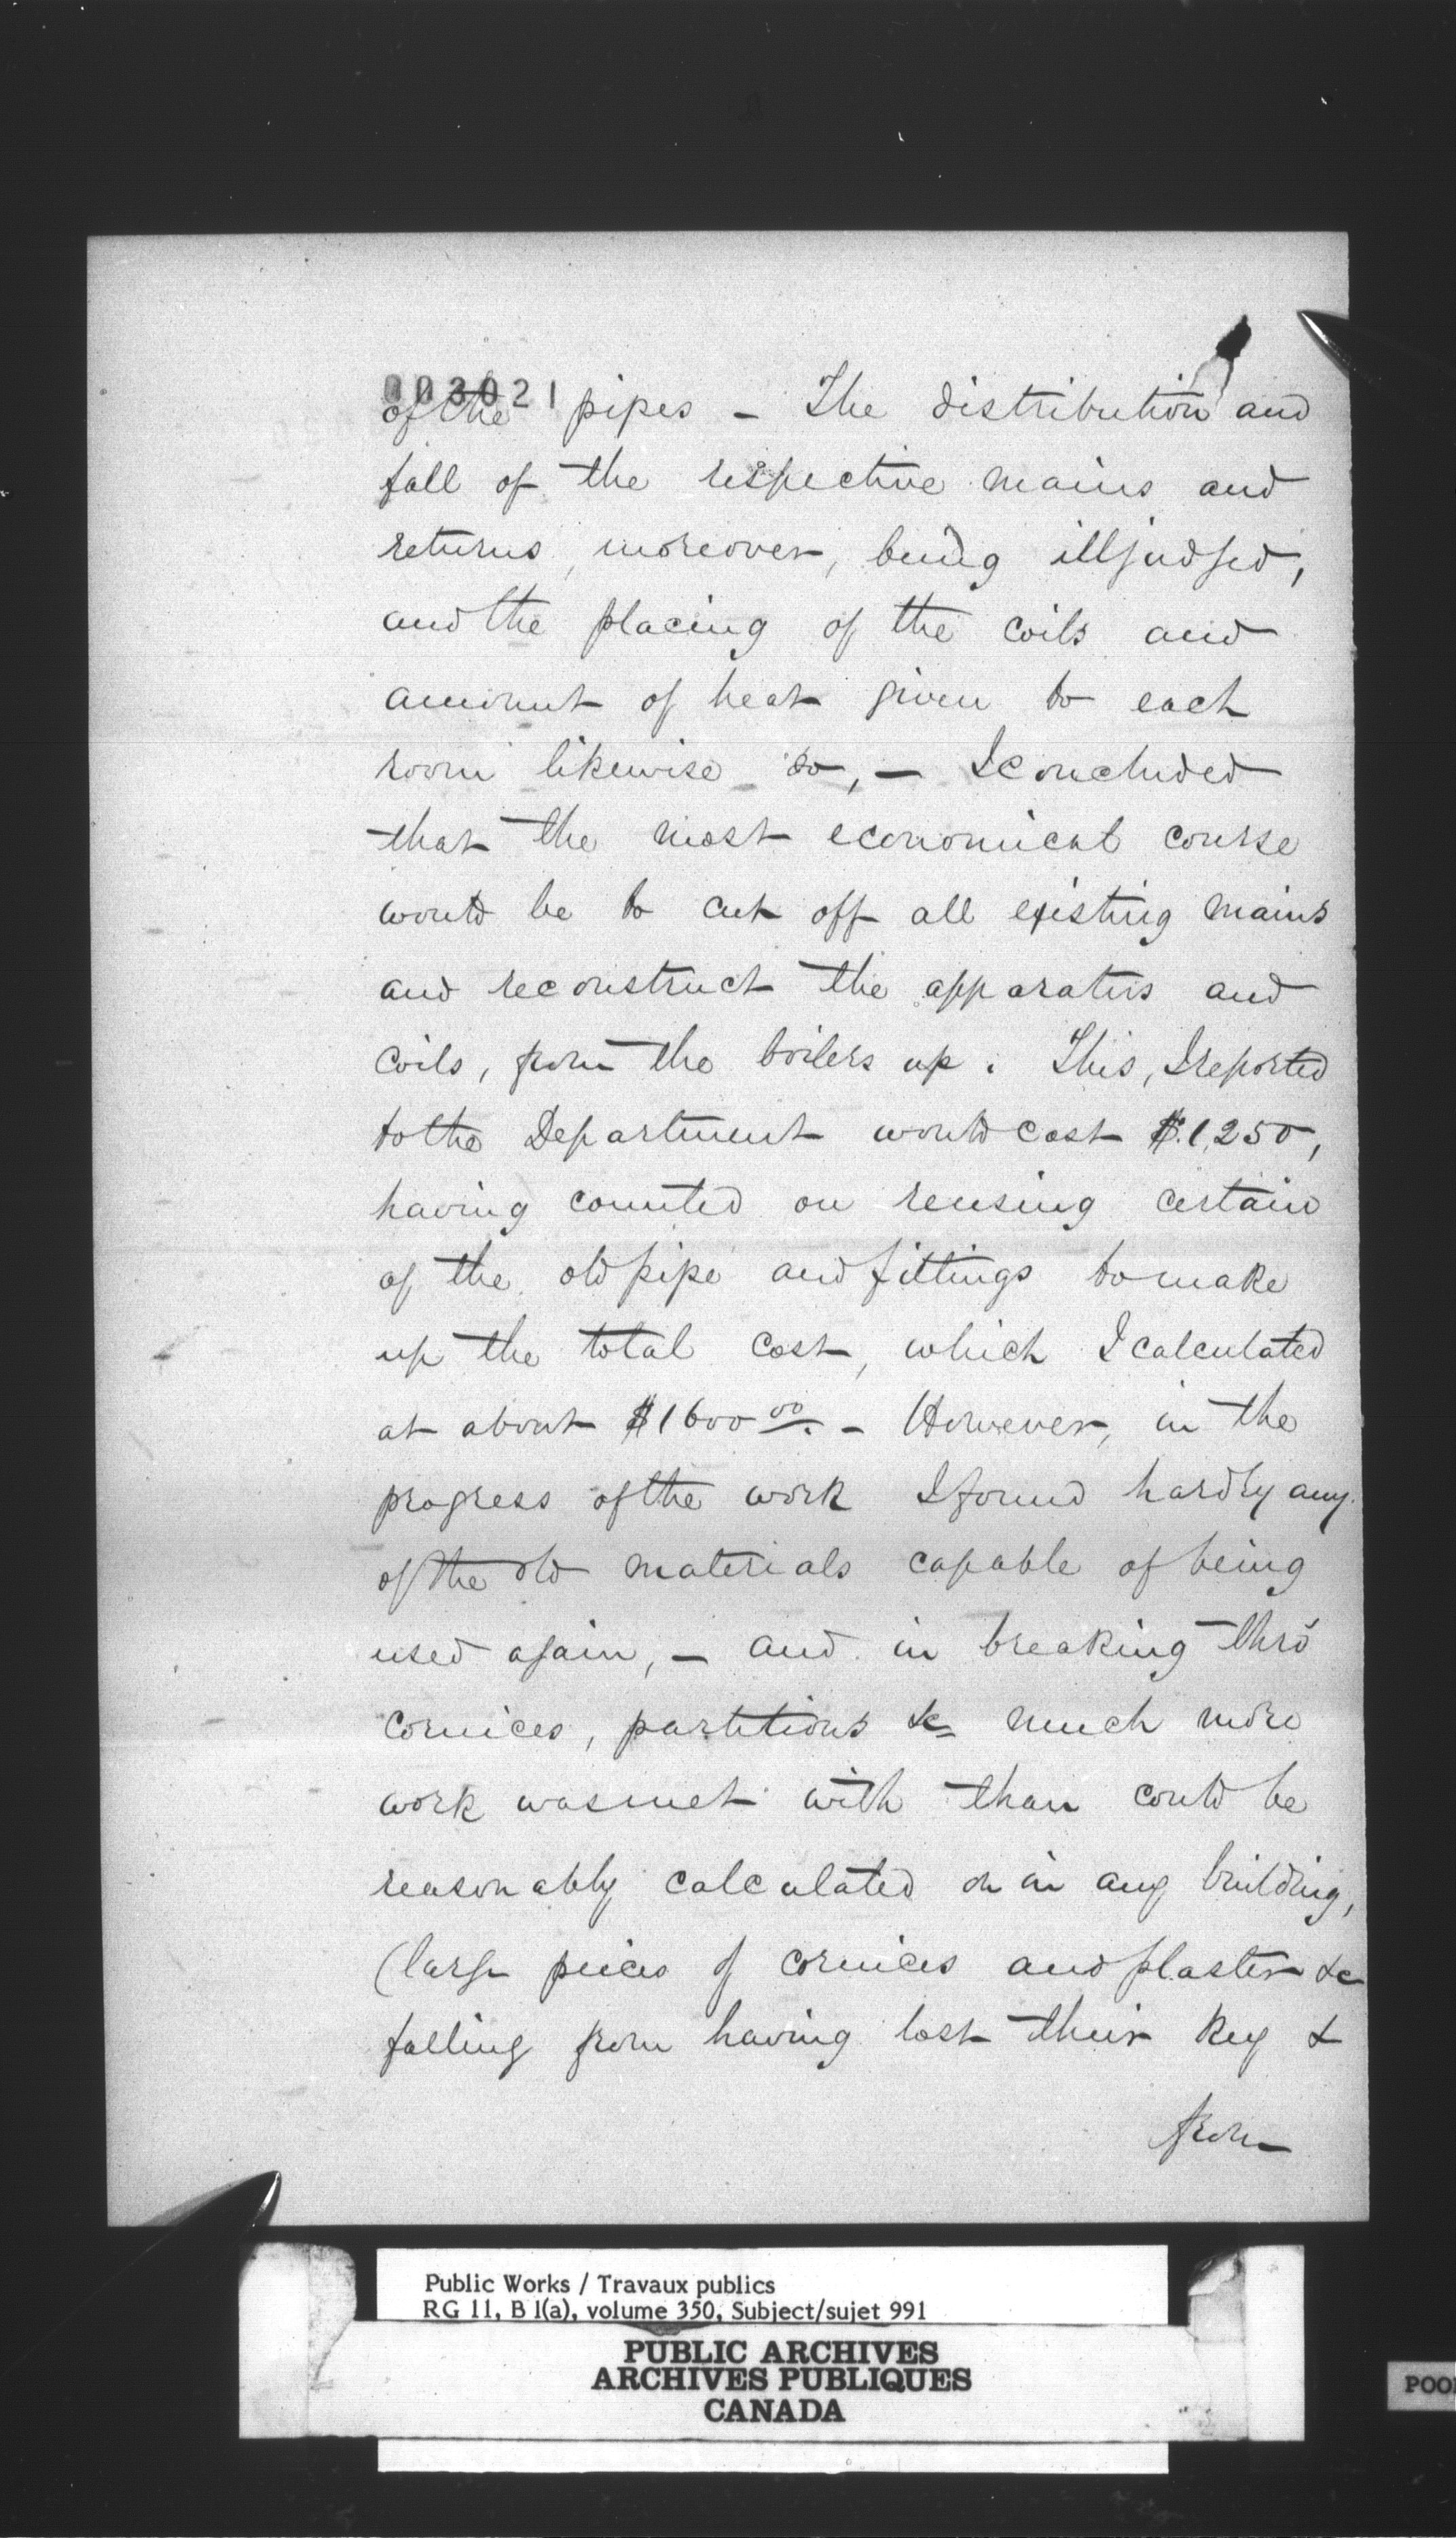 003021
of the pipes – The distribution and
fall of the respective mains and
returns, moreover, being illjudged,
and the placing of the coils and
amount of heat given to each
room likewise so, – I concluded
that the most economical course
would be to cut off all existing mains
and reconstruct the apparatus and
coils, from the boilers up. This, I reported
to the Department would cost $1,250,
having counted on reusing certain
of the old pipe and fittings to make
up the total cost, which I calculated
at about $1600 00. – However, in the
progress of the work I found hardly any
of the old materials capable of being
used again, – and in breaking thro'
cornices, partitions &c much more
work was met with than could be
reasonably calculated on in any building,
(large peices of cornices and plaster &c
falling from having lost their key &
from
Public Works / Travaux publics
RG 11, B 1(a), volume 350, Subject/sujet 991
PUBLIC ARCHIVES
ARCHIVES PUBLIQUES
CANADA
POO